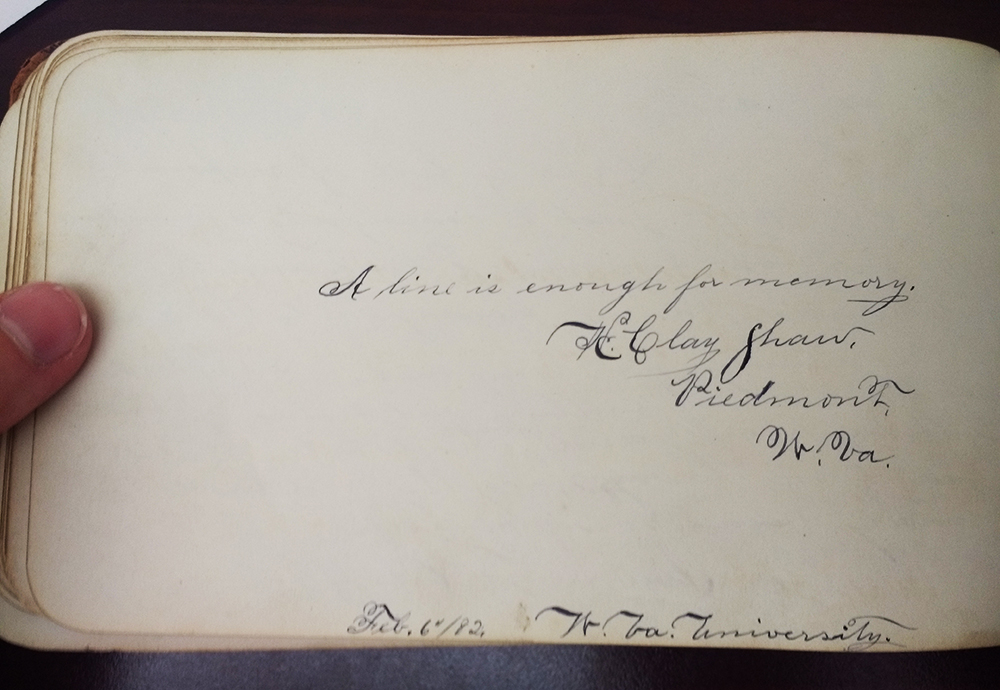 A line is enough for memory.
H. Clay Shaw,
Piedmont,
W. Va.
Feb. 6"/82. W. Va. University.